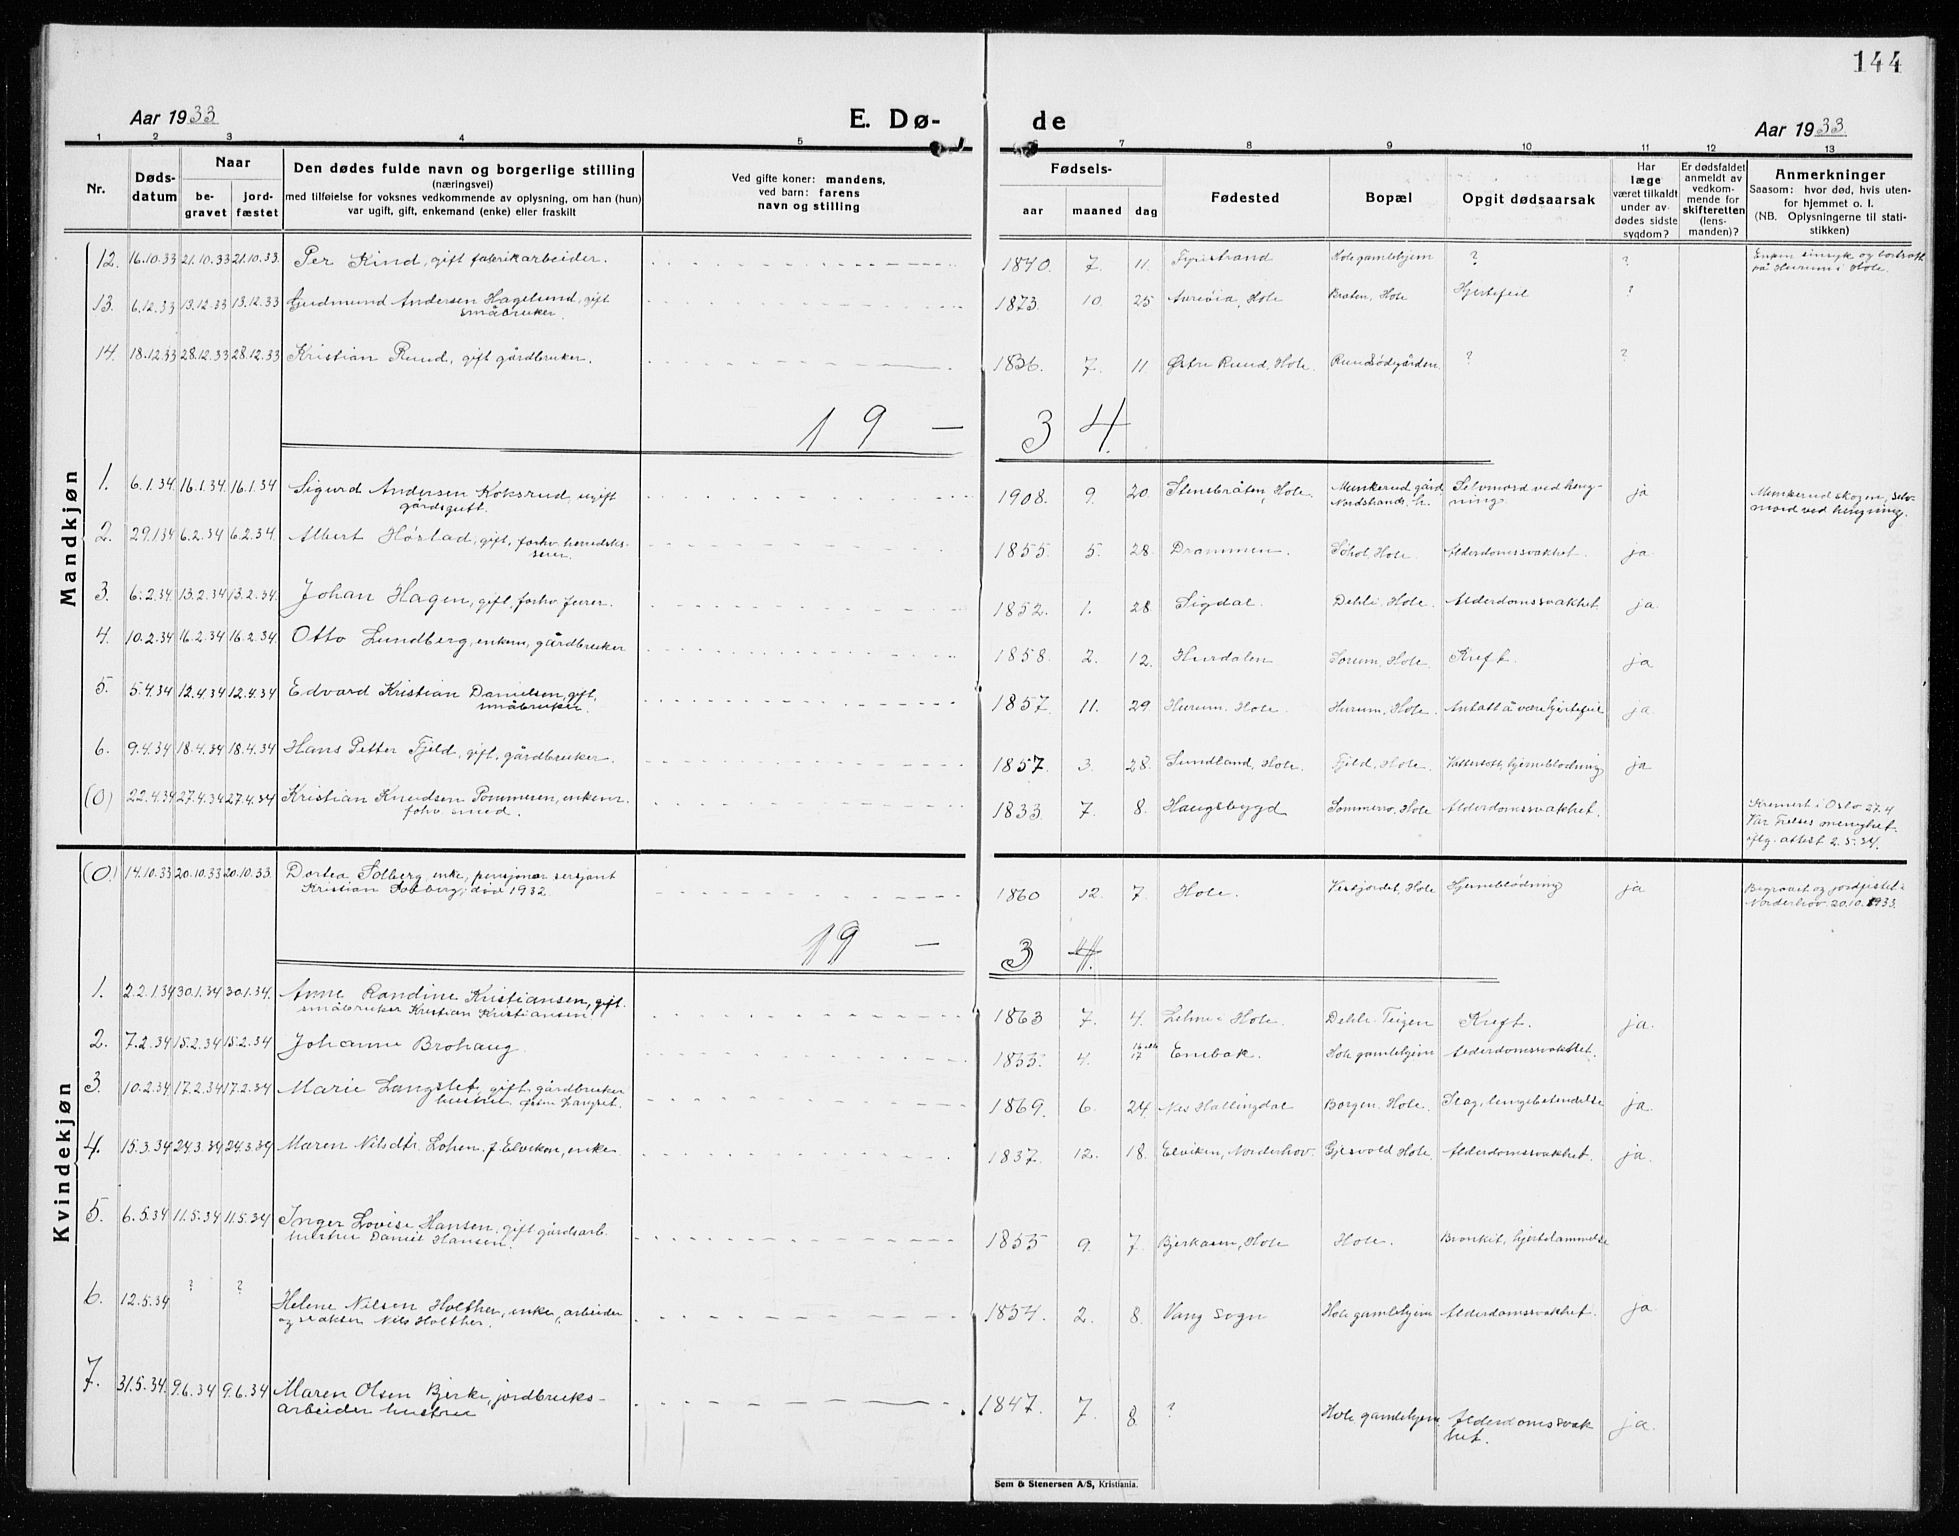 144
Aar 1933
E. Dø-
de
Aar 1933
1 2 3 4 5 7 8 9 10 11 12 13
Nr.
Døds-
datum
Naar
be-
gravet
jord-
fæstet
Den dødes fulde navn og borgerlige stilling
(næringsvei)
med tilføielse for voksnes vedkommende av oplysning, om han (hun)
var ugift, gift, enkemand (enke) eller fraskilt
Ved gifte koner: mandens,
ved barn: farens
navn og stilling
Fødsels-
aar maaned dag
Fødested
Bopæl
Opgit dødsaarsak
Har
læge
været tilkaldt
under av-
dødes sidste
sygdom?
Er dødsfaldet
anmeldt av
vedkom-
mende for
skifteretten
(lens-
manden)?
Anmerkninger
Saasom: hvor død, hvis uten-
for hjemmet o. l.
(NB. Oplysningerne til stati-
stikken)
Mandkjøn
12. 16.10.33 21.10.33 21.10.33 Per Kind, gift fabrikarbeider. 1840. 7. 11. Tyristrand Hole gamlehjem ? ?
på Hurum i Hole.
13. 6.12.33 13.12.33 13.12.33 Gudmund Andersen Hagelund, gift 1873. 10 25 Hole Braten, Hole Hjertefeil ?
småbruker.
14. 18.12.33 28.12.33 28.12.33 Kristian Ruud, gift gårdbruker. 1836. 7. 11 Østre Ruud, Hole. Ruudsødegården. ? ?
19 — 34.
1. 6.1.34 16.1.34. 16.1.34 Sigurd Andersen Koksrud, ugift 1908. 9. 20. Stensbråten, Hole. Munkerud gård Selvmord ved heng- ja Munkerud skogen, selv-
gårdsgutt. Nordstrand, h. ning. mord ved hengning.
2. 29.1.34 6.2.34 6.2.34. Albert Hørstad, gift, forhv. herredskas- 1855. 5. 28. Drammen. Søhol, Hole. Alderdomssvakhet. ja.
serer.
3. 6.2.34. 13.2.34 13.2.34. Johan Hagen, gift, forhv. feier. 1852. 1. 28. Sigdal. Dehli, Hole. Alderdomssvakhet. ja.
4. 10.2.34 16.2.34 16.2.34 Otto Lundberg, enkem, gårdbruker 1858. 2. 12. Hurdalen Sørum, Hole. Kreft. ja
5. 5.4.34 12.4.34 12.4.34 Edvard Kristian Danielsen, gift, 1857. 11. 29. Hurum, Hole. Hurum, Hole. Antatt å være hjertefeil ja.
småbruker.
6. 9.4.34 18.4.34 18.4.34 Hans Petter Fjeld, gift, gårdbruker. 1857. 3. 28. Sundland, Hole. Fjeld, Hole. Vattersott, hjerneblødning ja
(0) 22.4.34 27.4.34 27.4.34 Kristian Knudsen Pommeren, enkem. 1833. 7. 8. Haugsbygd Sommerro, Hole Alderdomssvakhet. Kremert i Oslo 27.4
forhv. smed. Vår Frelses menighet.
iflg. attest 2.5.34.
Kvindekjøn
(0.) 14.10.33 20.10.33 20.10.33 Dortea Solberg, enke, pensjonær sersjant 1860 12. 7. Hole. Vestjordet, Hole Hjerneblødning ja Begravet og jordfestet i
Kristian Solberg, død 1932. Norderhov 20.10.1933.
19 — 3 4.
1. 22.1.34 30.1.34 30.1.34. Anne Randine Kristiansen, gift. 1863 7. 4. Lehne i Hole. Dehli-Teigen Kreft. ja.
småbruker Kristian Kristiansen.
2. 7.2.34 15.2.34 15.2.34 Johanne Brohaug. 1833. 4. 16 eller 17 Enebak. Hole gamlehjem Alderdomssvakhet.
3. 10.2.34 17.2.34 17.2.34 Marie Langslet, gift. gårdbruker 1869. 6. 24. Nes Hallingdal Borgen, Hole. Slag, lungebetendelse ja.
hustru.
4. 15.3.34 24.3.34 24.3.34 Maren Nilsdtr. Lohen. f. Elviken, enke. 1837. 12. 18. Elviken, Norderhov. Gjesvold Hole. Alderdomssvakhet. ja.
5. 6.5.34 11.5.34 11.5.34 Inger Lovise Hansen, gift gårdsarb. 1855 9. 7. Bjerkaasen, Hole Hole. Bronkit, hjertelammelse
hustru Daniel Hansen.
6. 12.5.34 ? ? Helene Nilsen Holther, enke, arbeider 1854. 2. 8. Vang sogn Hole gamlehjem Alderdomssvakhet. ja
og slakter Nils Holther.
7. 31.5.34. 9.6.34 9.6.34 Maren Olsen Bjerke, jordbruks- 1847. 7. 8. ? Hole gamlehjem. Alderdomssvak ja.
arbeider hustru het.
Sem & Stenersen A/S, Kristiania.